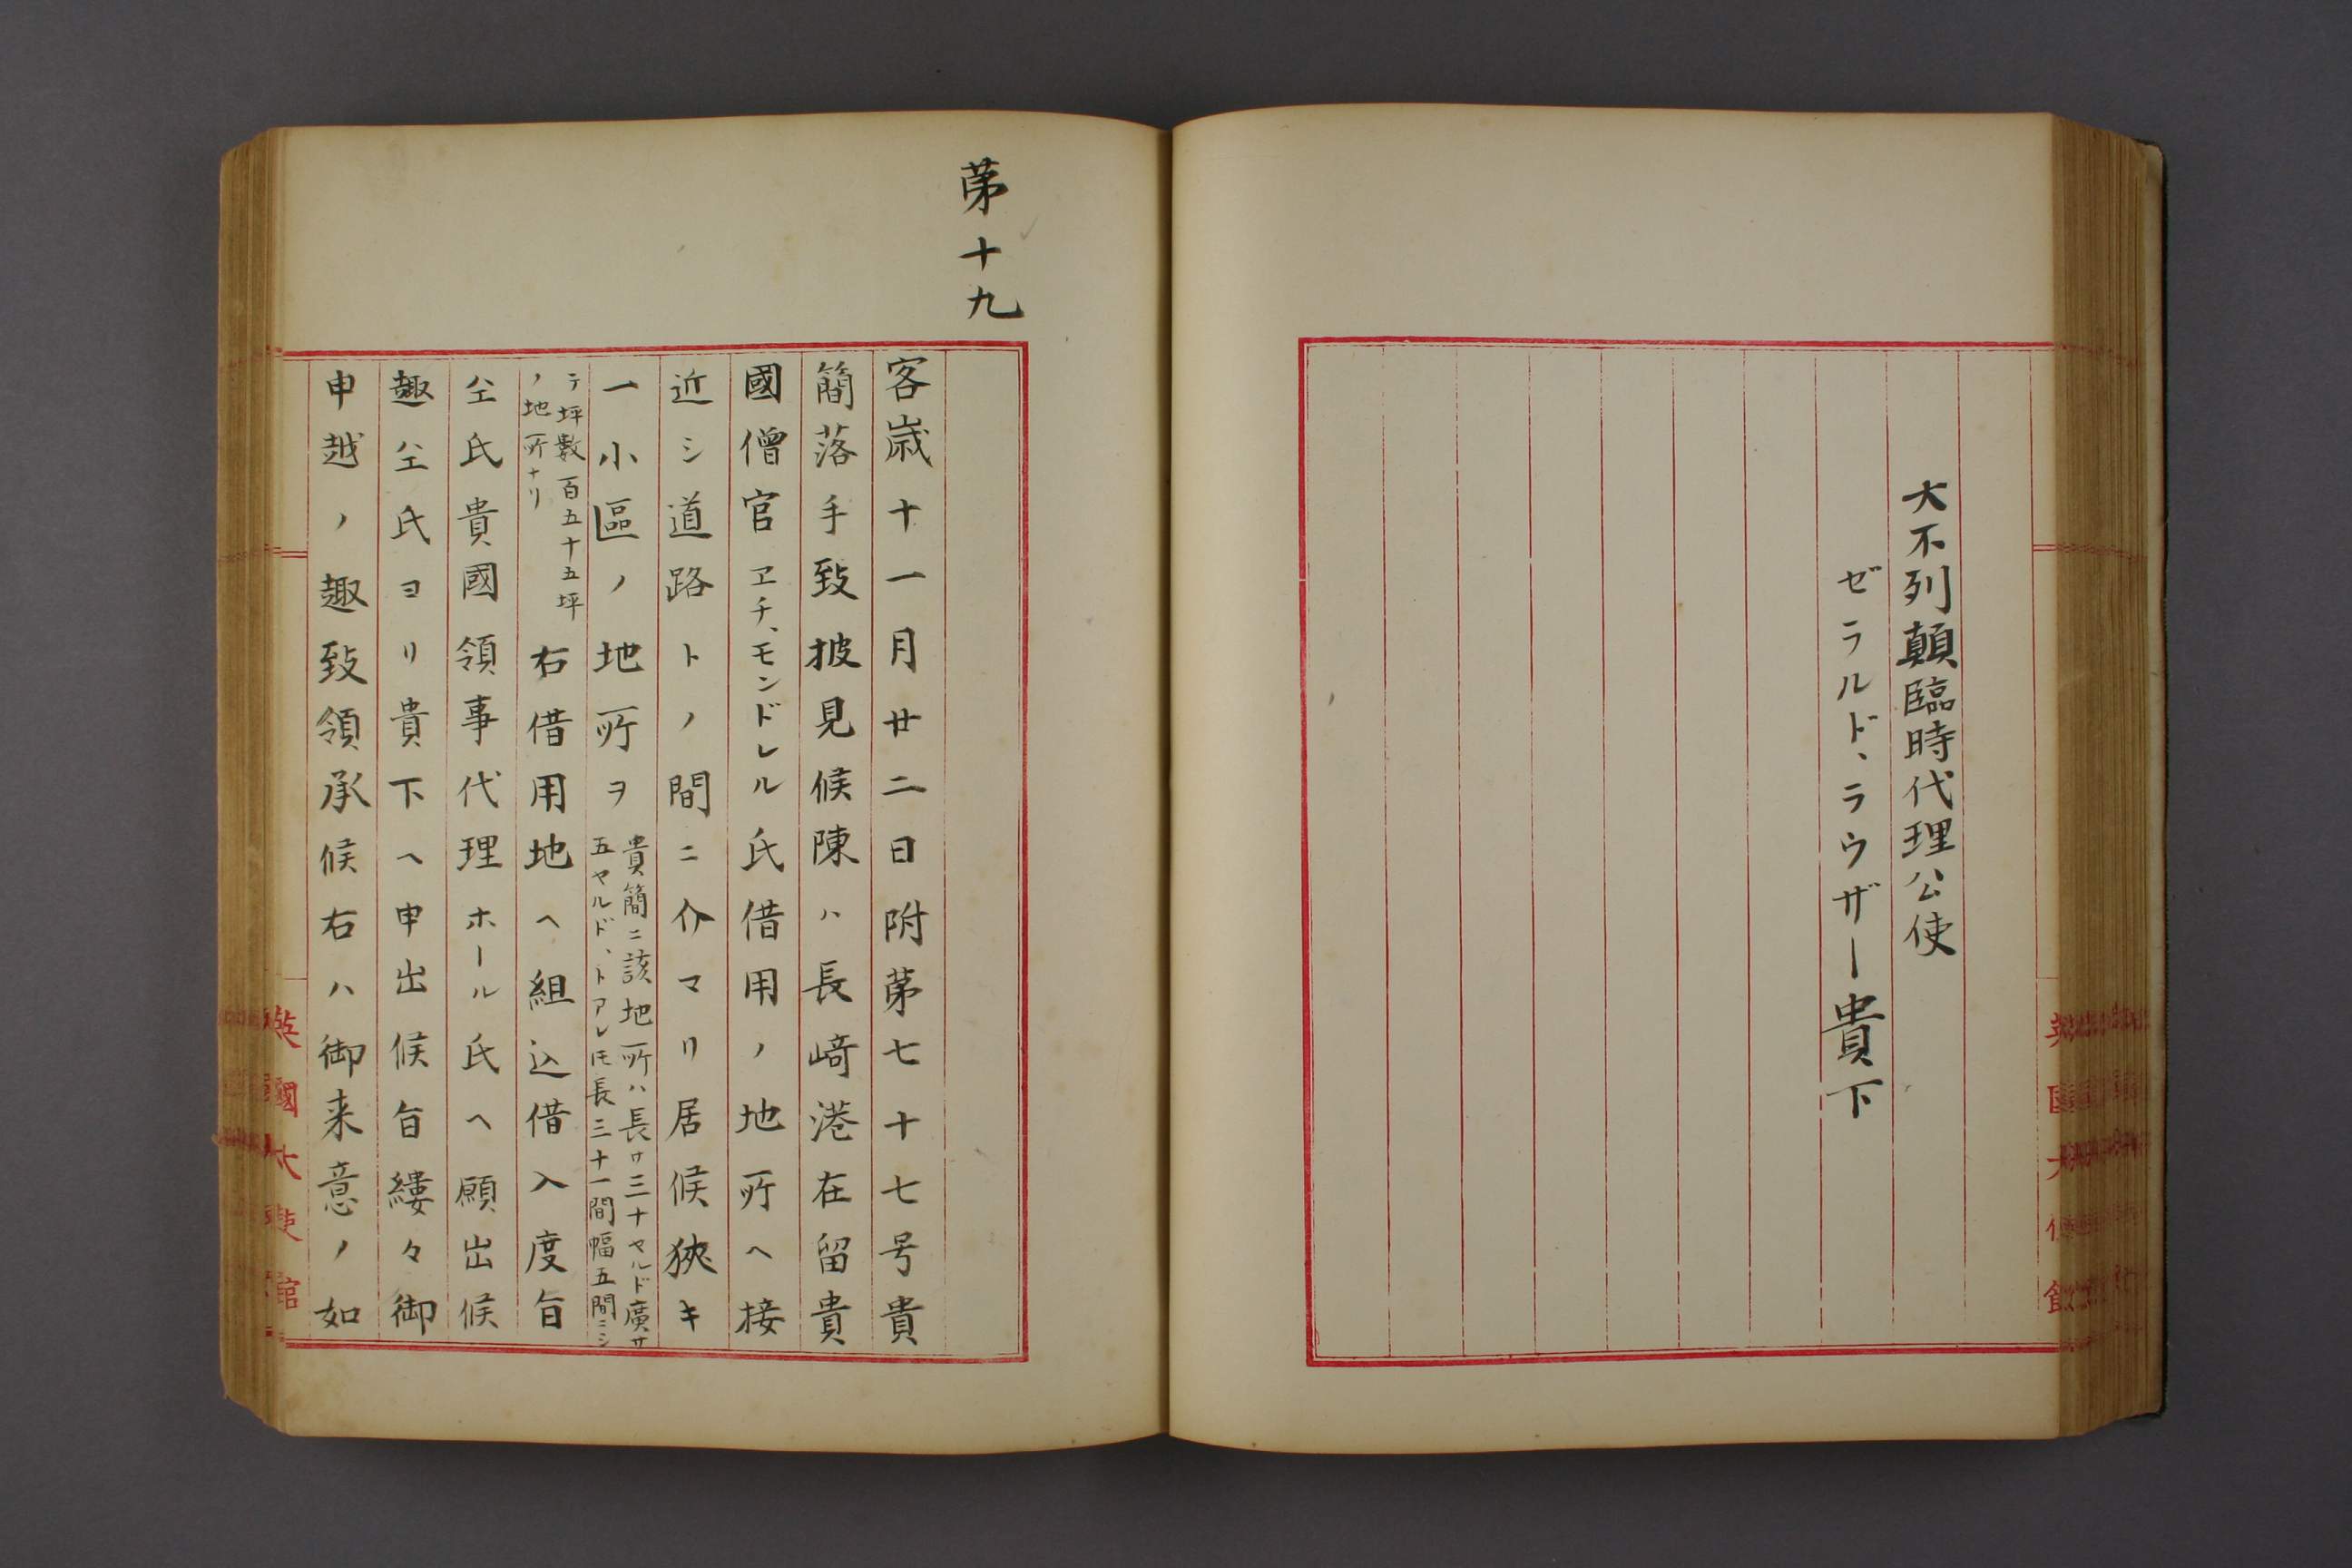 大不列顛臨時代理公使
ゼラルド、ラウザー貴下
英國大使館
第十九
客歳十一月廿二日附第七十七号貴
簡落手致披見候陳ハ長﨑港在留貴
國僧官ヱチ、モンドレル氏借用ノ地所ヘ接
近シ道路トノ間ニ介マリ居候狹キ
一小區ノ地所ヲ
貴簡ニ該地所ハ長サ三十ヤルド廣サ
五ヤルド、トアレ𪜈長三十一間幅五間ニシ
テ坪數百五十五坪
ノ地所ナリ
右借用地ヘ組込借入度旨
仝氏貴國領事代理ホール氏ヘ願出候
趣仝氏ヨリ貴下ヘ申出候旨縷々御
申越ノ趣致領承候右ハ御来意ノ如
英國大使館